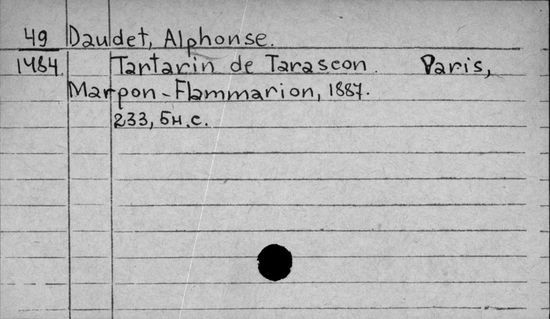 49 Daudet, Alphonse.
1484 Tartarin de Tarascon. Paris,
Marpon-Flammarion, 1887.
233, 5н.с.